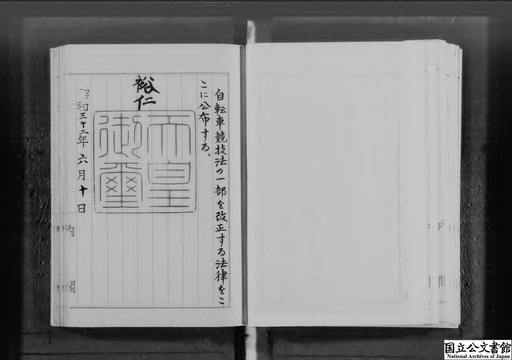 自転車競技法の一部を改正する法律をこ
こに公布する。
裕仁
天皇
御璽
昭和三十二年六月十日
内閣
国立公文書館
National Archives of Japan